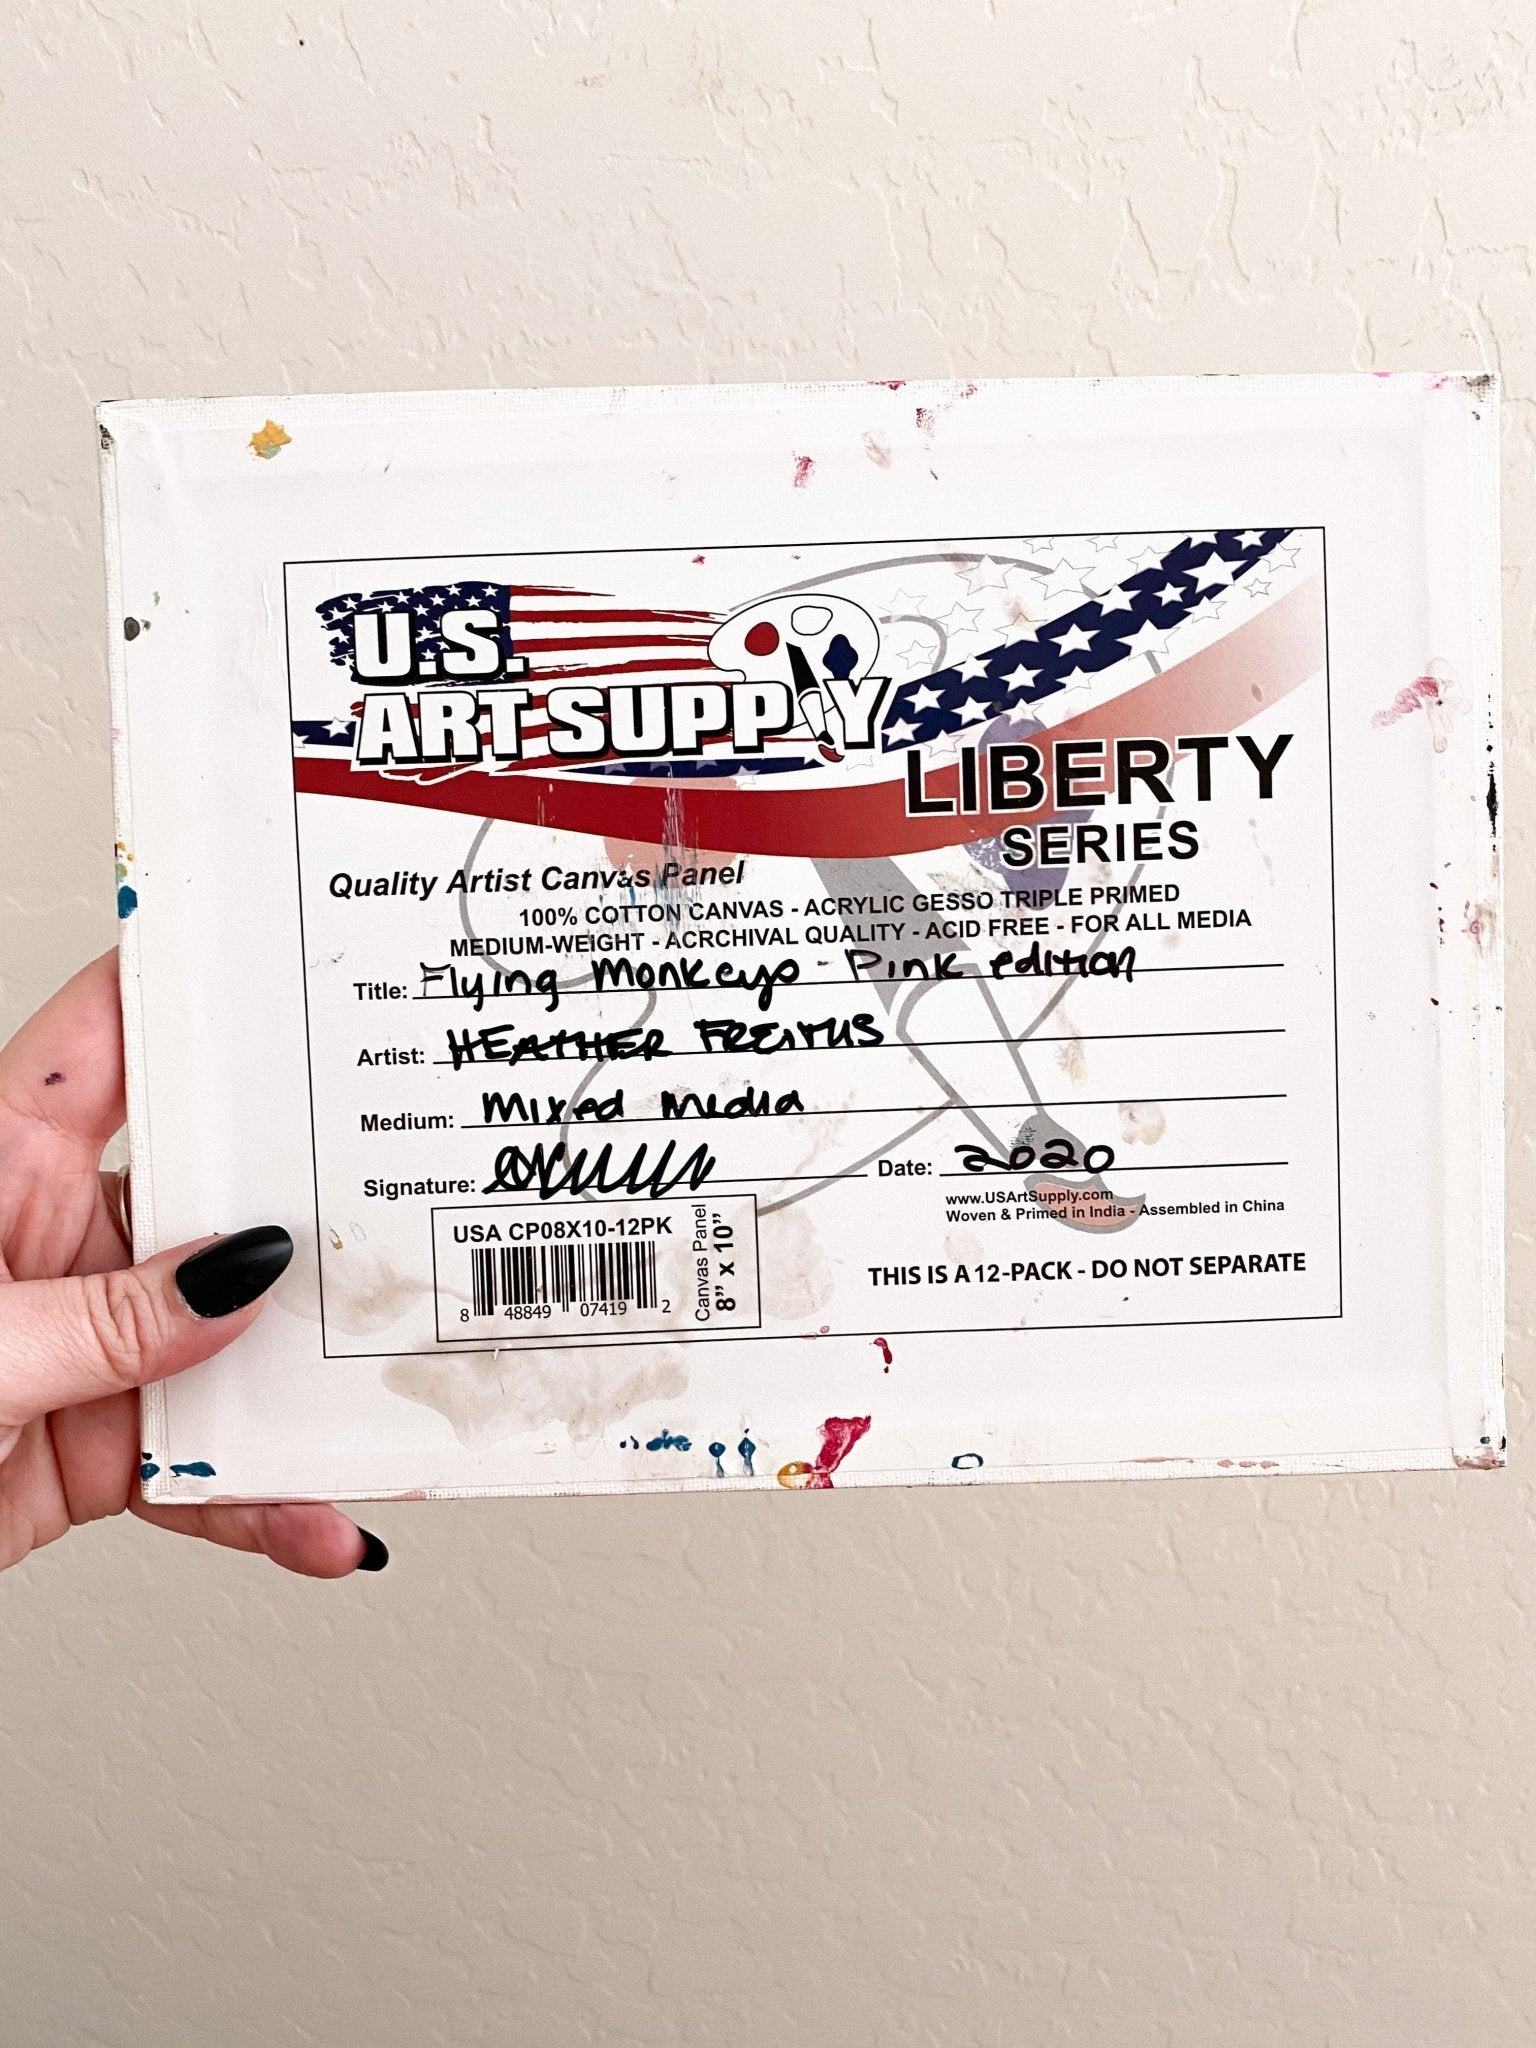 U.S.
ART SUPPLY
LIBERTY
SERIES
Quality Artist Canvas Panel
100% COTTON CANVAS - ACRYLIC GESSO TRIPLE PRIMED
MEDIUM-WEIGHT - ACRCHIVAL QUALITY - ACID FREE - FOR ALL MEDIA
Title: Flying Monkeys - Pink edition
Artist: HEATHER FREITUS
Medium: Mixed Media
Signature:
Date: 2020
www.USArtSupply.com
Woven & Primed in India - Assembled in China
USA CP08X10-12PK
8 48849 07419 2
Canvas Panel
8" x 10"
THIS IS A 12-PACK - DO NOT SEPARATE